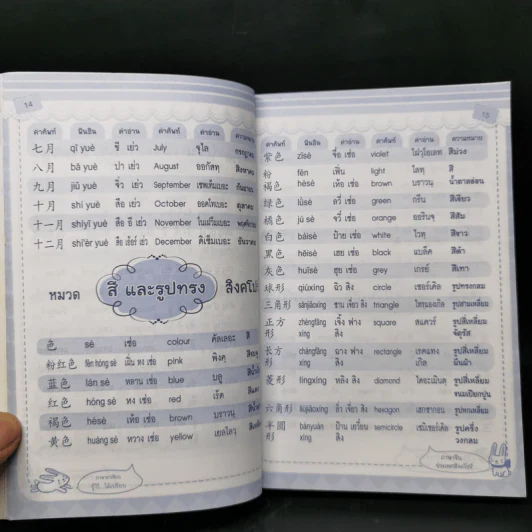 14
คำศัพท์ พินอิน คำอ่าน คำศัพท์ คำอ่าน
七月 qī yuè ชี เย่ว July จูไล
八月 bā yuè ปา เย่ว August ออกัสทฺ สิงหาคม
九月 jiǔ yuè จิ่ว เย่ว September เซพเท็มเบอะ กันยายน
十月 shí yuè สือ เย่ว October ออคโทเบอะ ตุลาคม
十一月 shíyī yuè สือ อี เย่ว November โนเว็มเบอะ
十二月 shí'èr yuè สือ เอ้อร์ เย่ว December ดิเซ็มเบอะ ธันวาคม
หมวด สี และรูปทรง
色 sè เซ่อ colour คัลเลอะ สี
粉红色 fěn hóng sè เฝิ่น หง เซ่อ pink พิงคฺ
蓝色 lán sè หลาน เซ่อ blue บลู
红色 hóng sè หง เซ่อ red เร็ด สีแดง
褐色 hèsè เห้อ เซ่อ brown บราวนฺ
黄色 huáng sè หวาง เซ่อ yellow เยลโลว
ภาษาจีน
15
คำศัพท์ พินอิน คำอ่าน คำศัพท์ คำอ่าน ความหมาย
紫色 zǐsè จื่อ เซ่อ violet ไฝวฺโอเลท สีม่วง
粉 fěn เฝิ่น light ไลทฺ สี
褐色 hèsè เห้อ เซ่อ brown บราวนฺ น้ำตาลอ่อน
绿色 lǜsè ลวี่ เซ่อ green กรีน สีเขียว
橘色 jú sè จวี๋ เซ่อ orange ออรินจฺ สีส้ม
白色 báisè ป๋าย เซ่อ white ไวทฺ สีขาว
黑色 hēisè เฮย เซ่อ black แบล็ค สีดำ
灰色 huīsè ฮุย เซ่อ grey เกรย์ สีเทา
球形 qiú xíng ฉิว สิง circle เซอร์เคิล รูปทรงกลม
三角形 sānjiǎoxíng ซาน เจี่ยว สิง triangle ไทรแองเกิล รูปสามเหลี่ยม
正方 zhèngfāng เจิ้ง ฟาง square สแควร์ รูปสี่เหลี่ยม
形 xíng สิง จัตุรัส
长方 chángfāng ฉาง ฟาง rectangle เรคแทง รูปสี่เหลี่ยม
形 xíng สิง เกิล ผืนผ้า
菱形 língxíng หลิง สิง diamond ไดอะเมินดฺ รูปสี่เหลี่ยม
ขนมเปียกปูน
六角形 liùjiǎoxíng ลิ่ว เจี่ยว สิง hexagon เฮกซากอน รูปหกเหลี่ยม
半圆 bànyuán ป้าน เยวี๋ยน semicircle เซมิเซอร์เคิล รูปครึ่ง
形 xíng สิง วงกลม
ภาษาจีน